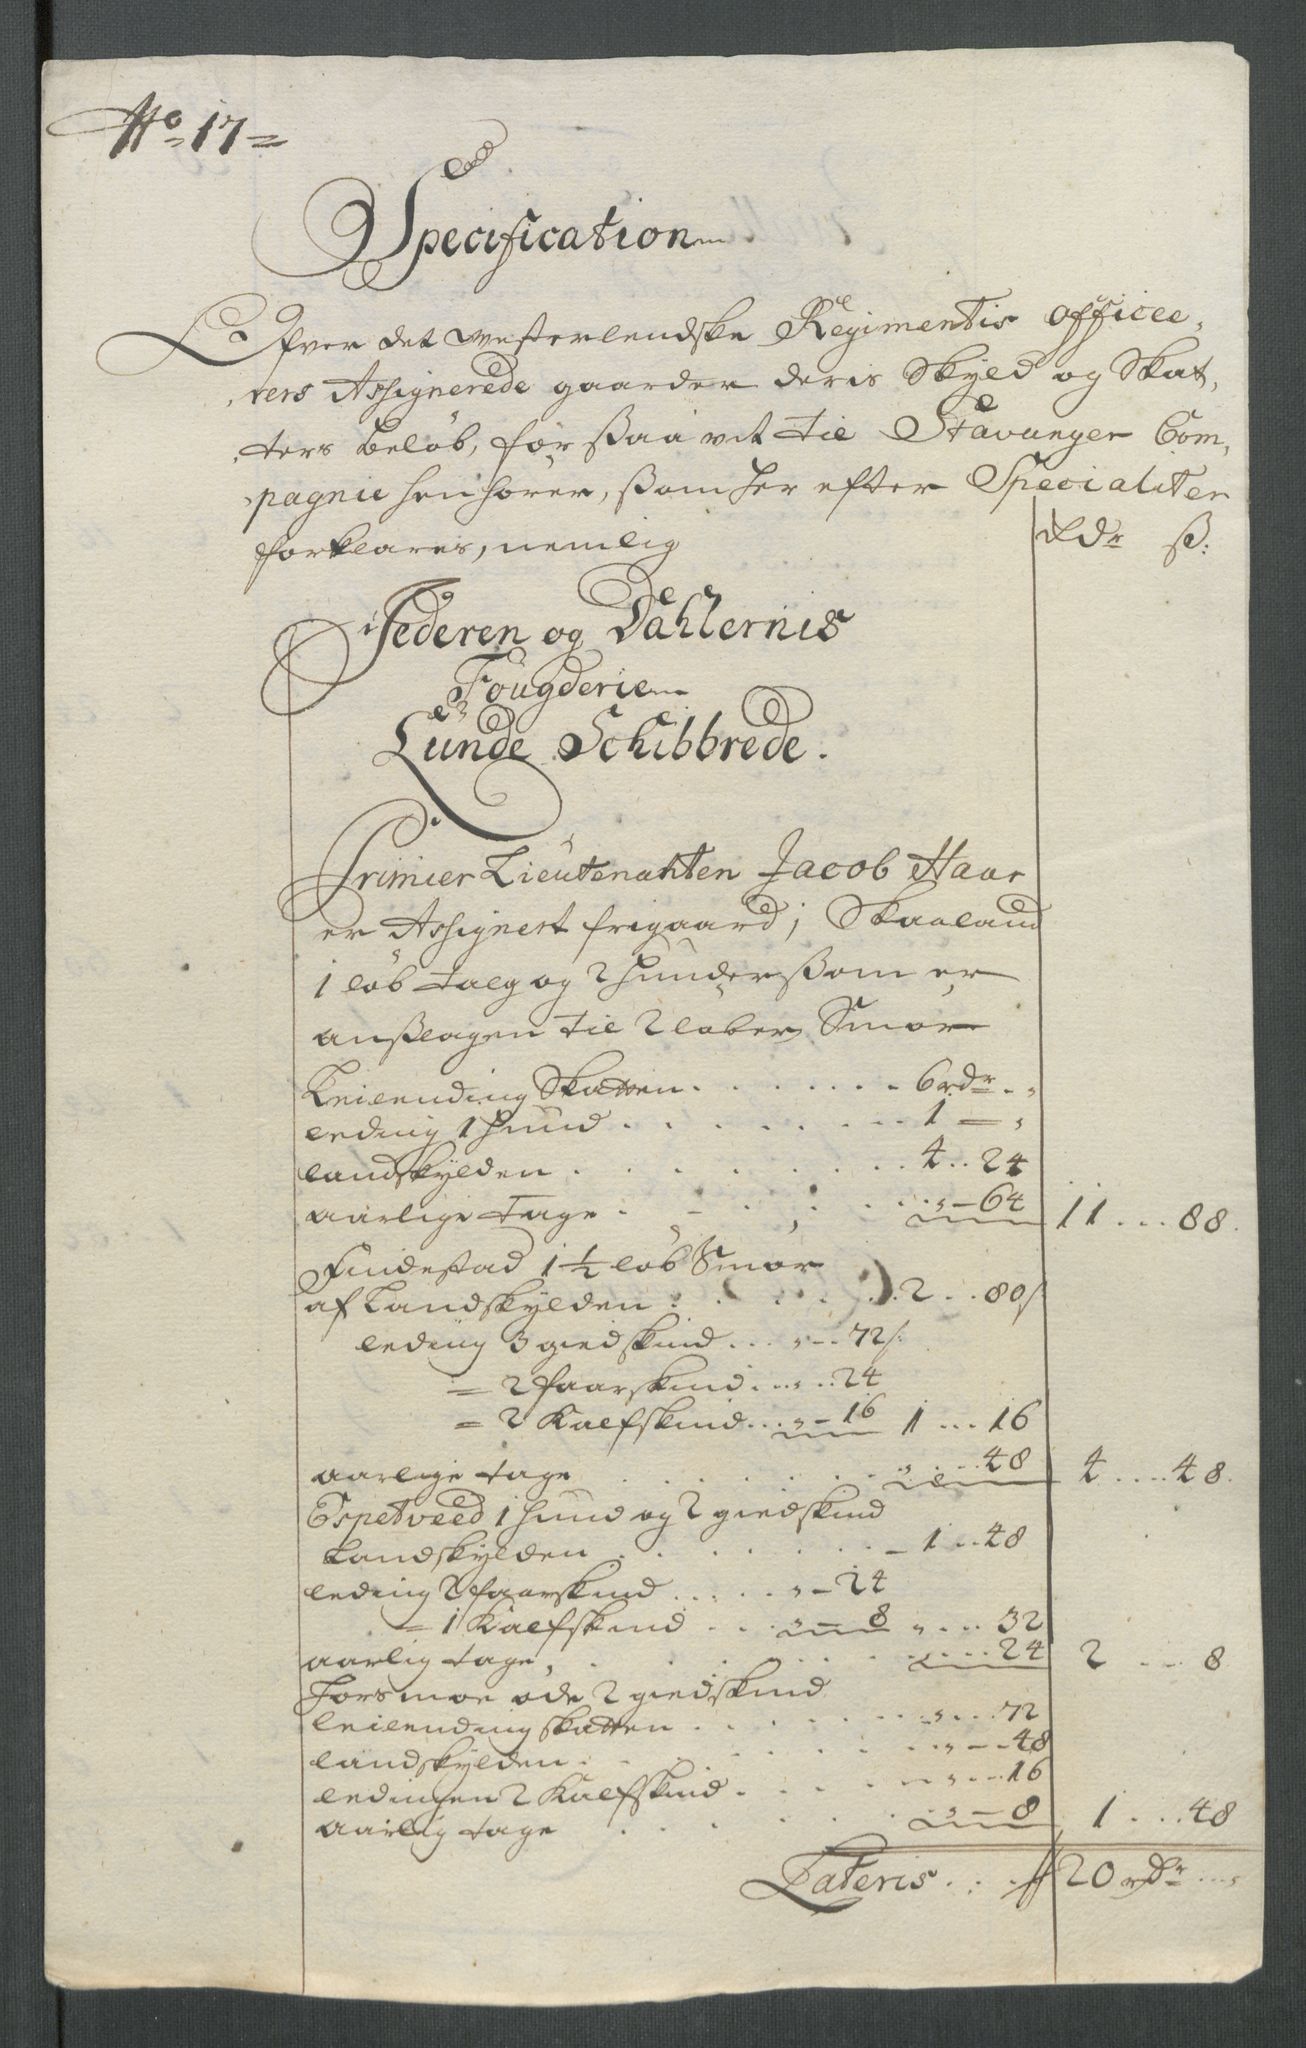 No 17 =
Specification
Ofver det westerlendske Regimentis officee,
rers Assignerede gaarder deris Skyld og Skat,
ters beløb, for ßaa vit til Stavanger Com,
pagnie henhører, ßom her efter Specialiter
forklares, nemlig
Rdr ß:
Jederen og Dahlernis
Fougderie
Lunde Schibbrede.
Primier Lieutenanten Jacob Haar
er Assignert frigaard; Skaaland
1 løb talg og 2 huuder ßom er
anßlagen til 2 løber Smør
Leilending Skatten . . . . . . 6 rdr . „
leding 1 huud . . . . . . . 1 — „
landskylden . . . . . . . . 4 .. 24
aarlige tage . . . . . . „ – 64 11 ... 88.
Findestad 1 ½ løb Smør
af Landskylden . . . . . . 2 .. 80 ß
leding 3 giedskind ... „ .. 72 ß:
= 2 faarskind . . . „ .. 24
= 2 Kalfskind ... „ – 16 1 ... 16
aarlige tage . . . . . . „ ... 48 4 .... 48.
Espetveed 1 huud og 2 giedskind
Landskylden . . . . . . – 1 .. 48
leding 2 faarskind . . . . „ – 24
= 1 Kalfskind . . . „ – 8 „ ... 32
aarlig tage, . . . . . . . . 24 2 ... 8
Forsmoe øde 2 giedskind
leilending skatten . . . . . . „ ... 72
landskylden . . . . . . . „ – 48
ledingen 2 Kalfskind . . . . . „ ... 16
aarlig tage . . . . . . „ – 8 1 ... 48
Lateris . . . 20 rdr ... „